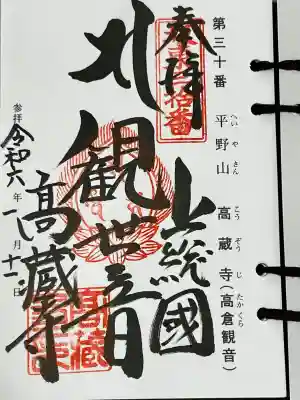 第三十番 平野山 高蔵寺(高倉観音)
へいやさん こうぞうじ たかくら
奉拝
上総國
北 観世音
高蔵寺
参拝 令和六年 一月十一日